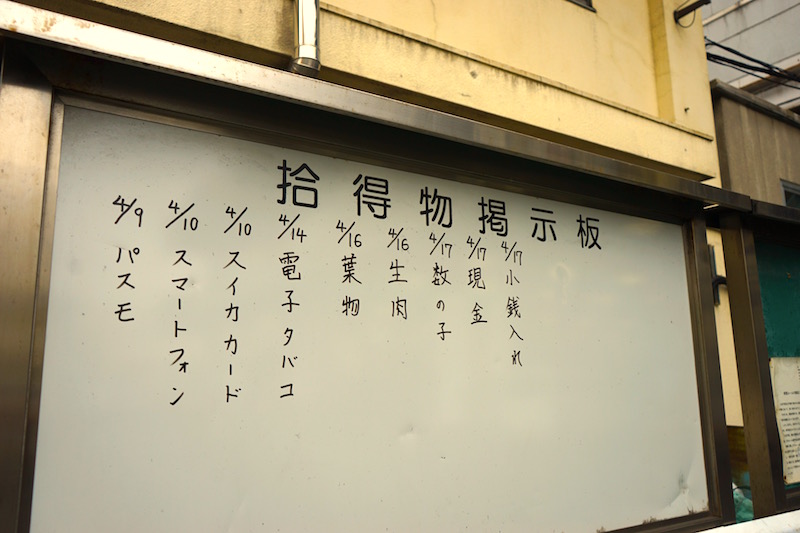 拾得物掲示板
4/17 小銭入れ
4/17 現金
4/17 数の子
4/16 生肉
4/16 葉物
4/14 電子タバコ
4/10 スイカカード
4/10 スマートフォン
4/9 パスモ